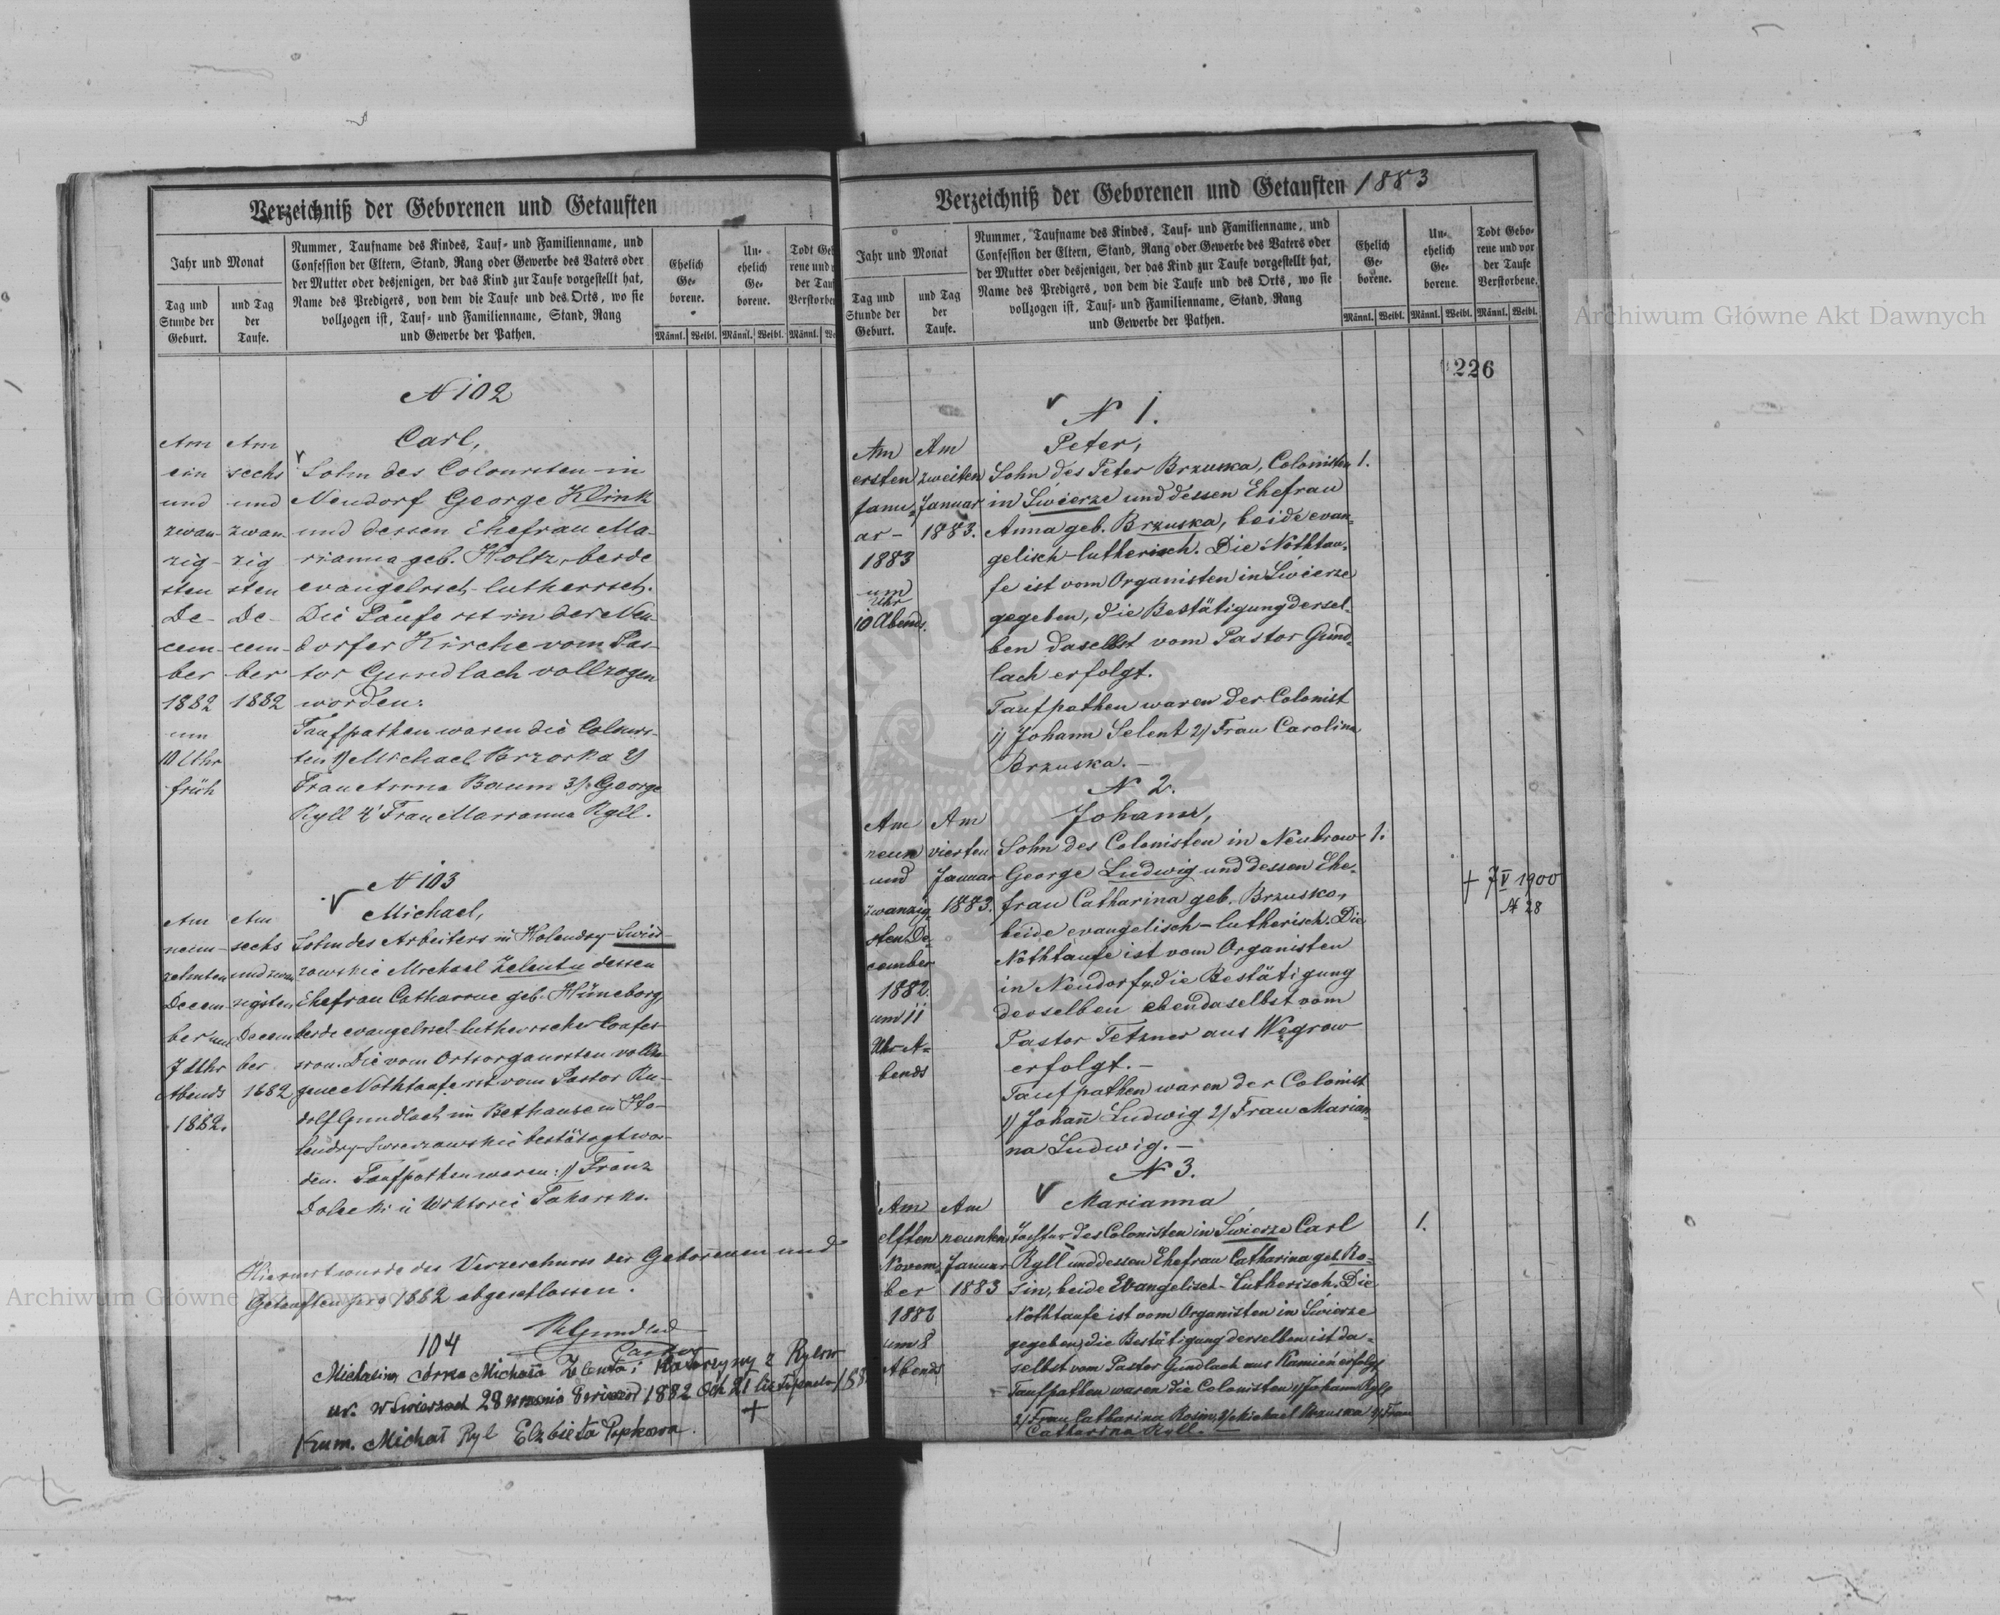 Verzeichniß der Geborenen und Getauften
Jahr und Monat
Tag und
Stunde der
Geburt.
und Tag
der
Taufe.
Nummer, Taufname des Kindes, Tauf- und Familienname, und
Confession der Eltern, Stand, Rang oder Gewerbe des Vaters oder
der Mutter oder desjenigen, der das Kind zur Taufe vorgestellt hat,
Name des Predigers, von dem die Taufe und des Orts, wo sie
vollzogen ist, Tauf- und Familienname, Stand, Rang
und Gewerbe der Pathen.
Ehelich
Ge-
borene.
Un-
ehelich
Ge-
borene.
Todt Geb
rene und
der Tau
Verstorbe
Männl. Weibl. Männl. Weibl. Männl. We
N 102
Am
ein
und
zwan-
zig-
sten
De-
cem-
ber
1882
um
10 Uhr
früh
Am
sechs
und
zwan-
zig
sten
De-
cem-
ber
1882
Carl,
Sohn des Colonisten in
Neudorf George Klink
und dessen Ehefrau Ma-
rianna geb. Holtz, beide
evangelisch-lutherisch.
Die Taufe ist in der Neu-
dorfer Kirche vom Pas-
tor Gundlach vollzogen
worden.
Taufpathen waren die Colonis-
ten 1) Michael Brzoska 2)
Frau Anna Baum 3) George
Ryll 4) Frau Marianna Ryll.
N 103
Am
neun-
zehnten
Decem-
ber um
7 Uhr
Abends
1882.
Am
sechs
und zwan
zigsten
Decem
ber
1882
Michael,
Sohn des Arbeiters in Holendry-Swier-
zowskie Michael Zelenta dessen
Ehefrau Catharine geb. Hüneborg,
beide evangelisch-lutherischer Confes-
sion. Die vom Ortsorganisten vollzo-
gene Nothtaufe ist vom Pastor Ru-
dolf Gundlach im Bethause in Ho-
lendry-Swierzowskie bestätigt wor-
den. Taufpathen waren: 1) Franz
Hiermit wurde das Verzeichniss der Geborenen und
Getauften pro 1882 abgeschlossen.
R Gundlach
Pastor
104
córka Michała Zelenta i Katarzyny z Rylow
ur. w Swierzach 28
Kum. Michał Ryl Elzbieta Popkowa.
Verzeichniß der Geborenen und Getauften 1883
Jahr und Monat
Tag und
Stunde der
Geburt.
und Tag
der
Taufe.
Nummer, Taufname des Kindes, Tauf- und Familienname, und
Confession der Eltern, Stand, Rang oder Gewerbe des Vaters oder
der Mutter oder desjenigen, der das Kind zur Taufe vorgestellt hat,
Name des Predigers, von dem die Taufe und des Orts, wo sie
vollzogen ist, Tauf- und Familienname, Stand, Rang
und Gewerbe der Pathen.
Ehelich
Ge-
borene.
Un-
ehelich
Ge-
borene.
Todt Gebo-
rene und vor
der Taufe
Verstorbene.
Männl. Weibl. Männl. Weibl. Männl. Weibl.
226
N 1.
Am
ersten
Janu-
ar-
1883
um
Uhr
10 Abends.
Am
zweiten
Januar
1883.
Peter,
Sohn des Peter Brzuska, Colonisten 1.
in Swierze und dessen Ehefrau
Anna geb. Brzuska, beide evan-
gelisch-lutherisch. Die Nothtau-
fe ist vom Organisten in Swierze
gegeben, die Bestätigung dersel-
ben daselbst vom Pastor Gund-
lach erfolgt.
Taufpathen waren der Colonist
1) Johann Selent 2) Frau Carolina
Brzuska.-
N 2.
Am
neun
und
zwanzig-
sten De-
cember
1882.
um 11
Uhr A-
bends
Am
vierten
Januar
1883.
Johann,
Sohn des Colonisten in Neubrow 1.
George Ludwig und dessen Ehe-
frau Catharina geb. Brzuska,
beide evangelisch-lutherisch. Die
Nothtaufe ist vom Organisten
in Neudorf, die Bestätigung
derselben ebendaselbst vom
Pastor Tetzner aus Węgrow
erfolgt.-
Taufpathen waren der Colonist
1) Johan̄ Ludwig 2) Frau Marian-
na Ludwig.-
+ 7 V 1900
N 28
N 3.
Am
elften
Novem-
ber
1882
um 8
Abends
Am
neunten
Januar
1883
Marianna
Tochter des Colonisten in Swierze Carl 1.
Ryll und dessen Ehefrau Catharina geb. Ro-
sin, beide Evangelisch-Lutherisch. Die
Nothtaufe ist vom Organisten in Swierze
gegeben, die Bestätigung derselben ist da-
selbst vom Pastor Gundlach aus Kamień erfolgt
Taufpathen waren die Colonisten 1) Johann Ryll
2) Frau Catharina Rosin, 3) Michael Brzuska 4) Frau
Catharina Ryll.-
Archiwum Główne Akt Dawnych
Archiwum Główne Akt Dawnych